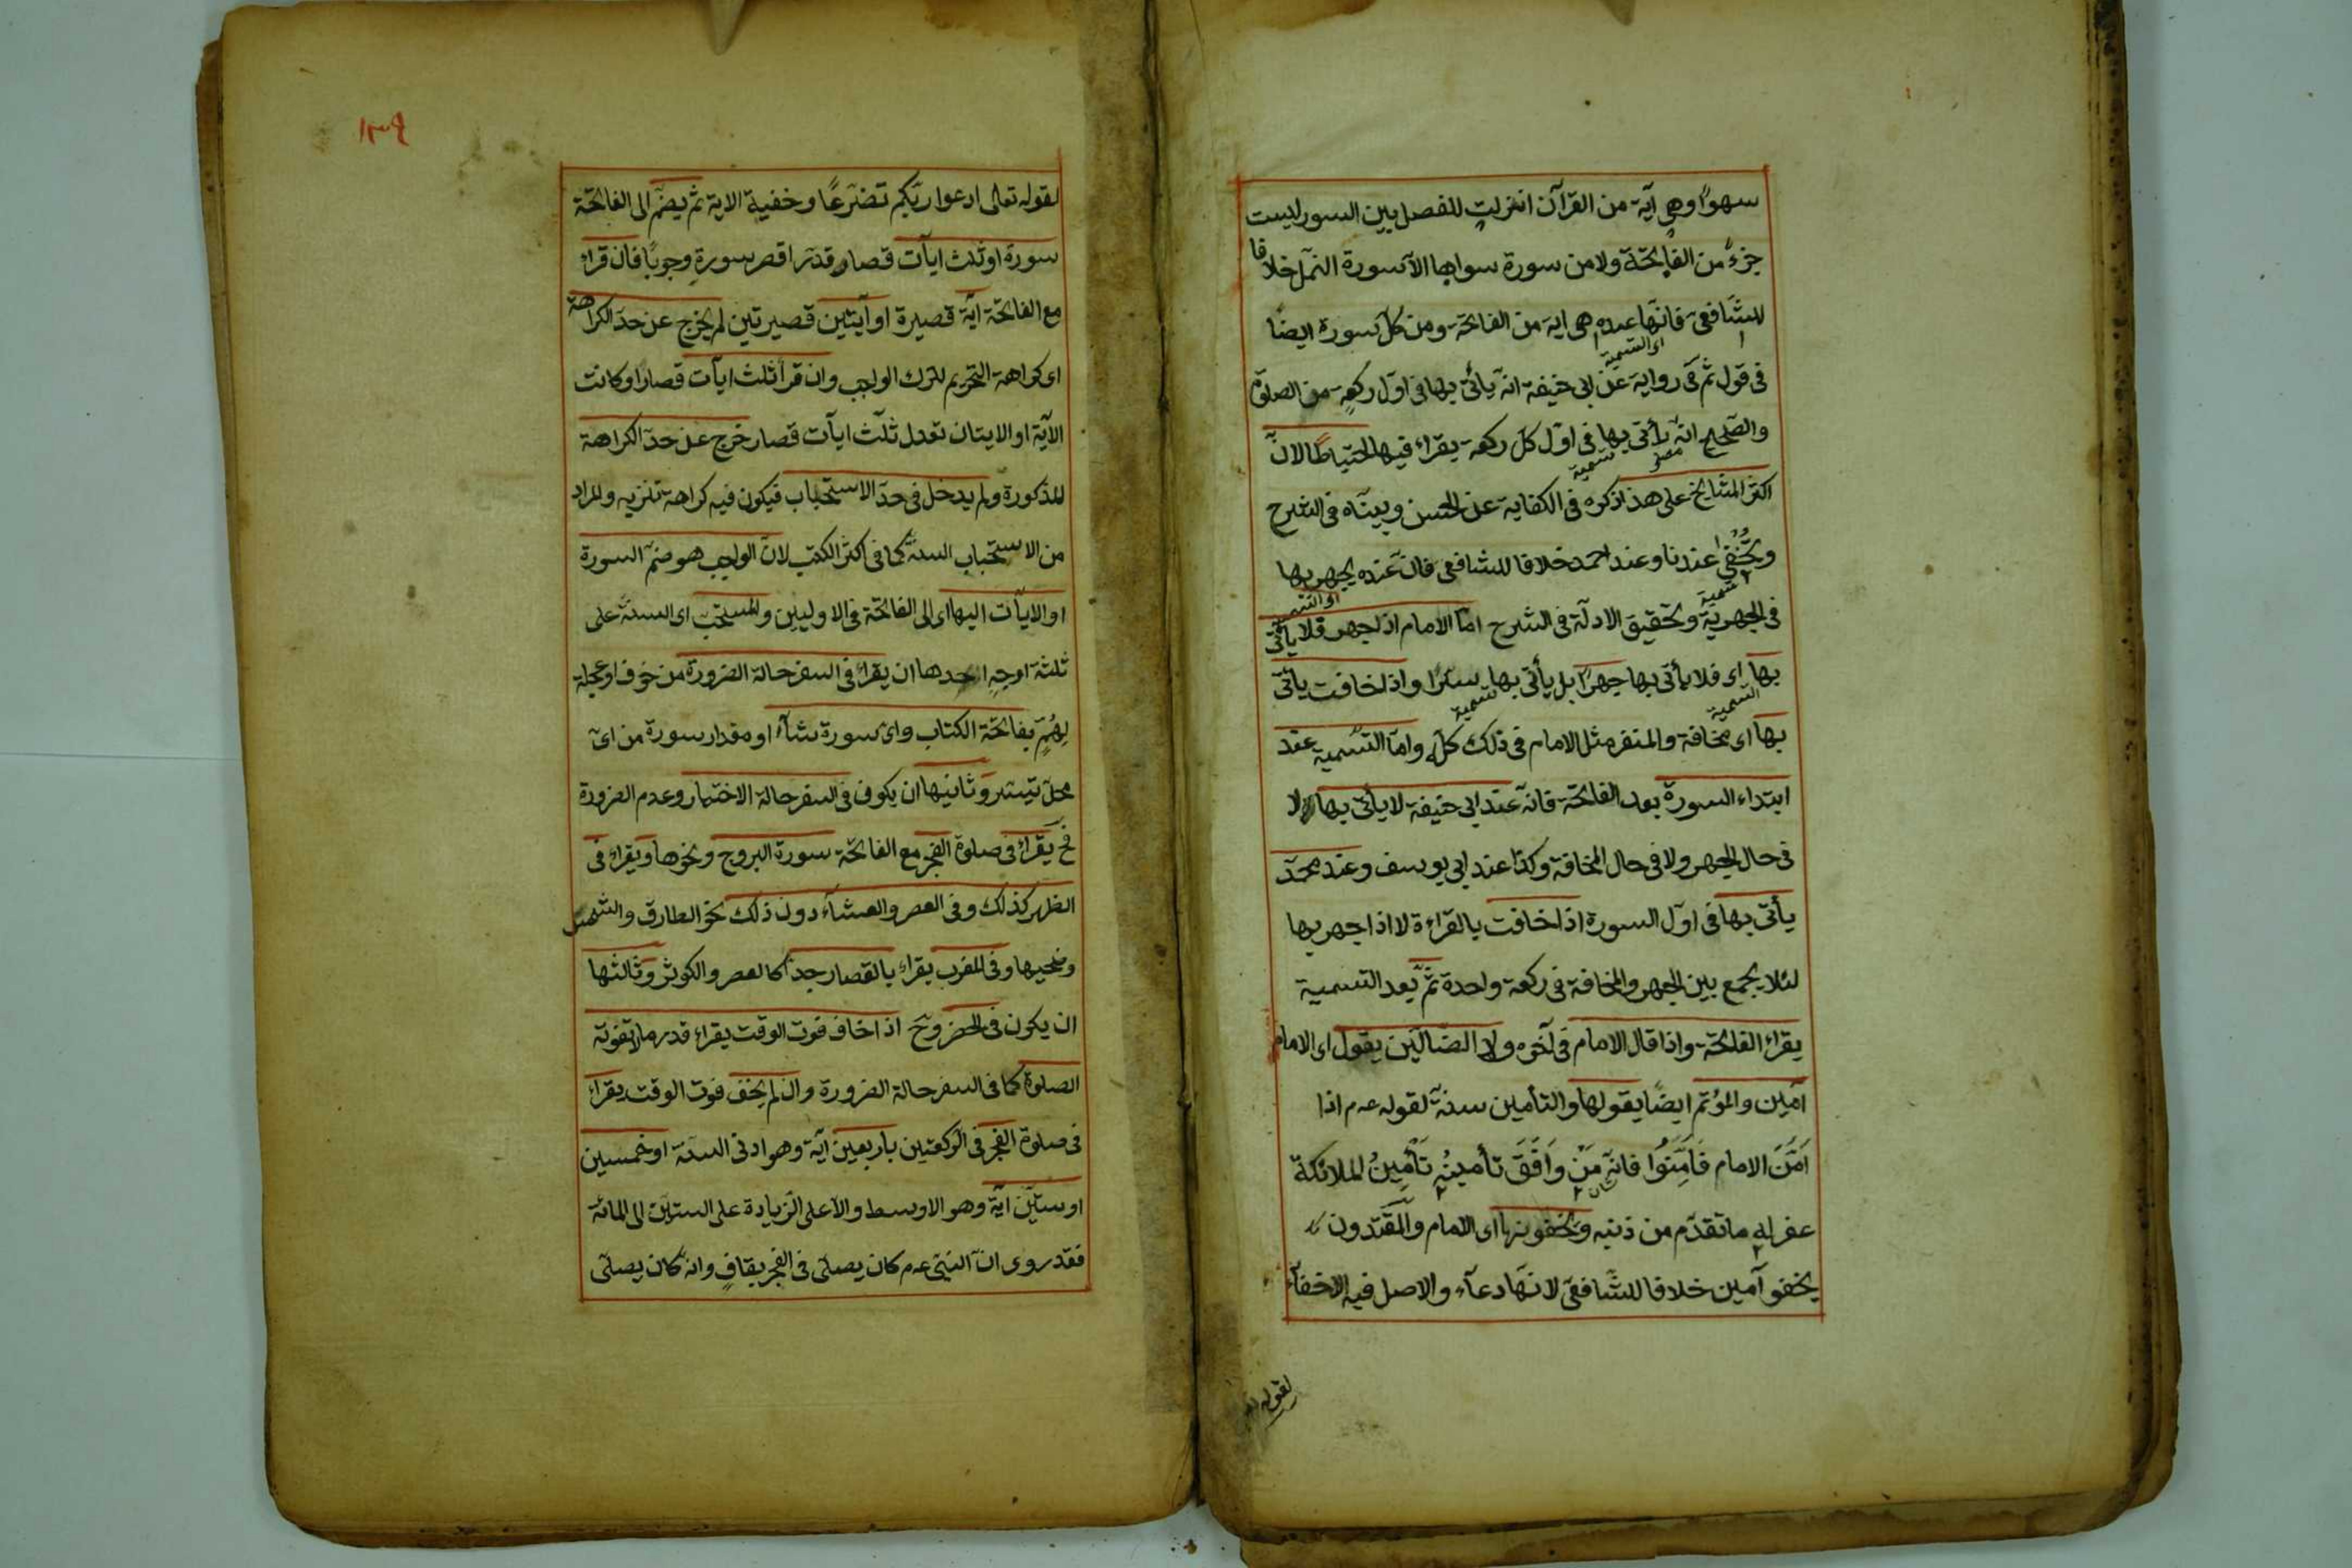 سهوًا وهى آية من القرآن انزلت للفصل بين السور ليست
جزءً من الفاتحة ولا من سورة سواها الّا سورة النمل خلافا
للشافعى فانّها عنده هى اية من الفاتحة ومن كلّ سورة ايضًا
اى التسمية
فى قول ثمّ فى رواية عن ابى حنيفة انّه يأتى بها فى اوّل ركعة من الصلوة
والصّحيح انّه يأتى بها فى اوّل كلّ ركعة يقراء فيها احتياطًا لانّ
تسمية
اكثر المشايخ على هذا ذكره فى الكفاية عن الحسن وبيّنّاه فى الشرح
ويخفى عندنا وعند احمد خلافا للشافعى فانّ عنده يجهر بها
تسمية
اى التسمية
فى الجهرية وتحقيق الادلّة فى الشرح امّا الامام اذا جهر فلا يأتى
بها اى فلا يأتى بها جهرًا بل يأتى بها سرًّا واذا خافت يأتى
التسمية
تسمية
بها اى مخافة والمنفر مثل الامام فى ذلك كلّه وامّا التسمية عند
ابتداء السورة بعد الفاتحة فانّه عند ابى حنيفة لا يأتى بها لا
فى حال الجهر ولا فى حال المخافة وكذا عند ابى يوسف وعند محمّد
يأتى بها فى اوّل السورة اذا خافت بالقراءة لا اذا جهر بها
لئلا يجمع بين الجهر والمخافة فى ركعة واحدة ثمّ بعد التسمية
يقراء الفاتحة واذا قال الامام فى آخره ولا الضّالّين يقول اى الامام
آمين والمؤتم ايضًا يقولها والتأمين سنة لقوله عم اذا
اَمَّنَ الامام فَاَمِّنُوا فانّه مَنْ وَافَقَ تأمينُه تَأْمِينُ الملائكة
غفر له ما تقدّم من ذنبه ويخفونها اى الامام والمقتدون
يخفو آمين خلافا للشّافعىّ لانّها دعآء والاصل فيه الاخفآء
لقوله
لقوله تعالى ادعوا ربّكم تضرّعًا وخفية الاية ثمّ يضمّ الى الفاتحة
سورة او ثلث ايآت قصار قدر اقصر سورة وجوبًا فان قراء
مع الفاتحة آية قصيرة او آيتين قصيرتين لم يخرج عن حدّ الكراهة
اى كراهة التحريم لترك الواجب وان قرأ ثلث ايآت قصارا وكانت
الآية او الايتان تعدل ثلث ايآت قصار خرج عن حدّ الكراهة
المذكورة ولم يدخل فى حدّ الاستحباب فيكون فيه كراهة تنزيه والمراد
من الاستحباب السنّة كما فى اكثر الكتب لانّ الواجب هو ضمّ السورة
او الايآت اليها اى الى الفاتحة فى الاوليين والمستحب اى السنّة على
ثلثة اوجه احدها ان يقراء فى السفر حالة الضرورة من خوف او عجلة
بفاتحة الكتاب واى سورة شآء او مقدار سورة من اىّ
محلّ تيسّر وثانيها ان يكون فى السفر حالة الاختيار وعدم الضرورة
فح يقراء فى صلوة الفجر مع الفاتحة سورة البروج ونحوها ويقراء فى
الظهر كذلك وفى العصر والعشآء دون ذلك نحو الطارق والشمس
وضحيها وفى المغرب يقراء بالقصار جدّا كالعصر والكوثر وثالثها
ان يكون فى الحضر وح اذا خاف فوت الوقت يقراء قدر ما لا تفوته
الصلوة كما فى السفر حالة الضرورة وان لم يخف فوت الوقت يقراء
فى صلوة الفجر فى الرّكعتين باربعين آية وهو ادنى السنّة او خمسين
او ستّين آية وهو الاوسط والاعلى الزيادة على الستين الى المائة
فقد روى انّ النبىّ عم كان يصلّى فى الفجر بقافٍ وانّه كان يصلّى